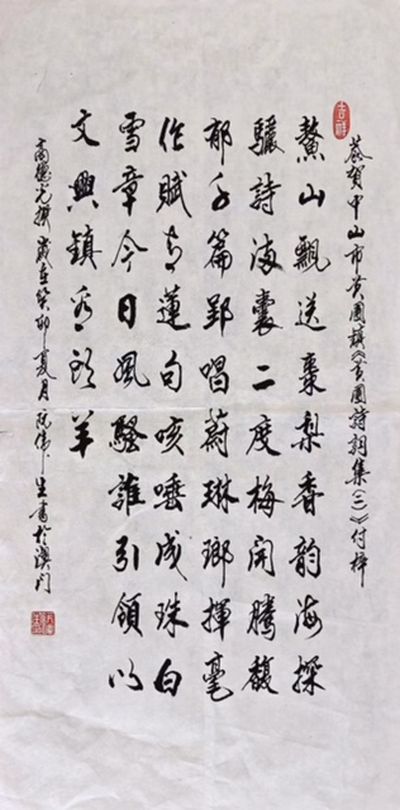 吉祥
恭賀中山市黃圃鎮《黃圃詩詞集(二)》付梓
鰲山飄送棗梨香韵海探
驪詩滿囊二度梅開騰馥
郁千篇郢唱蔚琳瑯揮毫
作賦青蓮句咳唾成珠白
雪章今日風騷誰引領以
文興鎮看頭羊
高德光撰歲在癸卯夏月阮偉生書於澳門